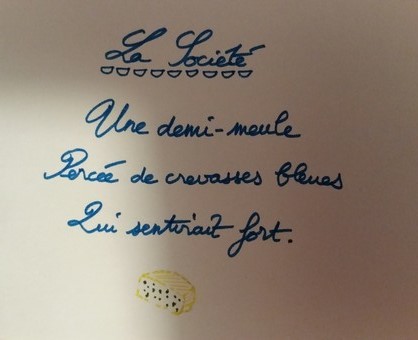 La Société
Une demi-meule
Percée de crevasses bleues
Qui sentirait fort.